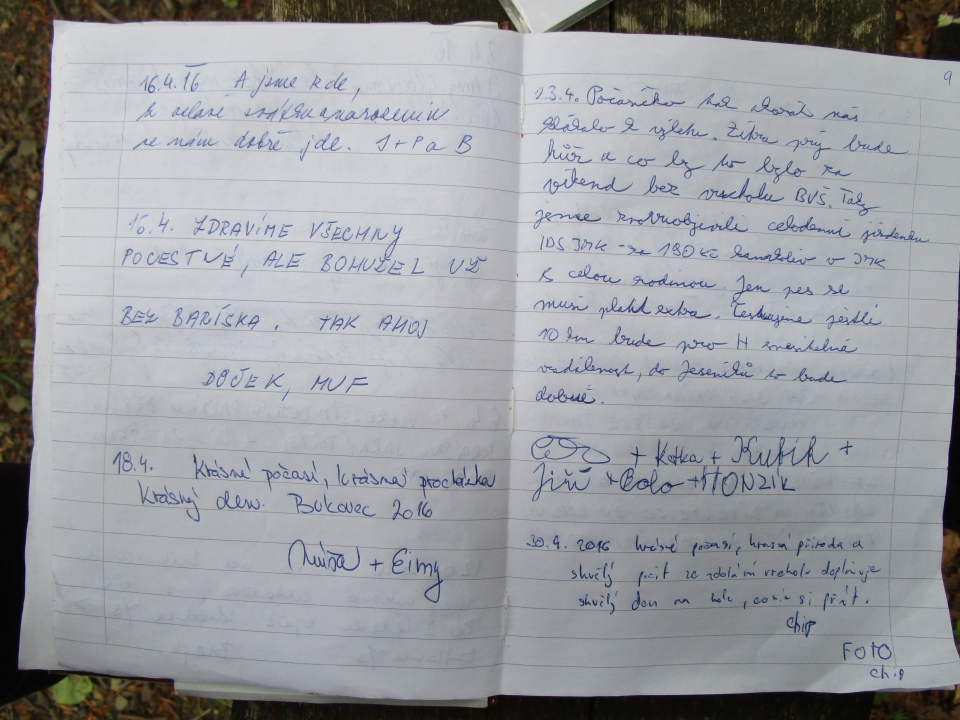 16.4.16 A jsme zde,
se nám dobře jde. J+P a B
16.4. ZDRAVÍME VŠECHNY
POCESTNÉ, ALE BOHUŽEL UŽ
BEZ BARÍŠKA. TAK AHOJ
DOJEK, MUF
18.4. Krásné počasí, krásná procházka
krásný den. Bukovec 2016
Míša + Eimy
9
23.4. Počasíčko nás
lákalo k výletu. Zítra prý bude
hůř a co by to bylo za
víkend bez vrcholu BVŠ. Taky
jsme znovuobjevili celodenní jízdenku
IDS JMK - za 190 Kč kamkoliv v JMK
s celou rodinou. Jen pes se
musí platit extra. Testujeme jestli
10 km bude pro H snesitelná
vzdálenost, do Jeseníků to bude
dobré.
+ Katka + Kubík +
Jiří + Bolo + HONZÍK
30.4. 2016 krásné počasí, krásná příroda a
skvělý pocit ze zdolání vrcholu doplňuje
skvělý den na kole, co víc si přát.
chip
FOTO
chip